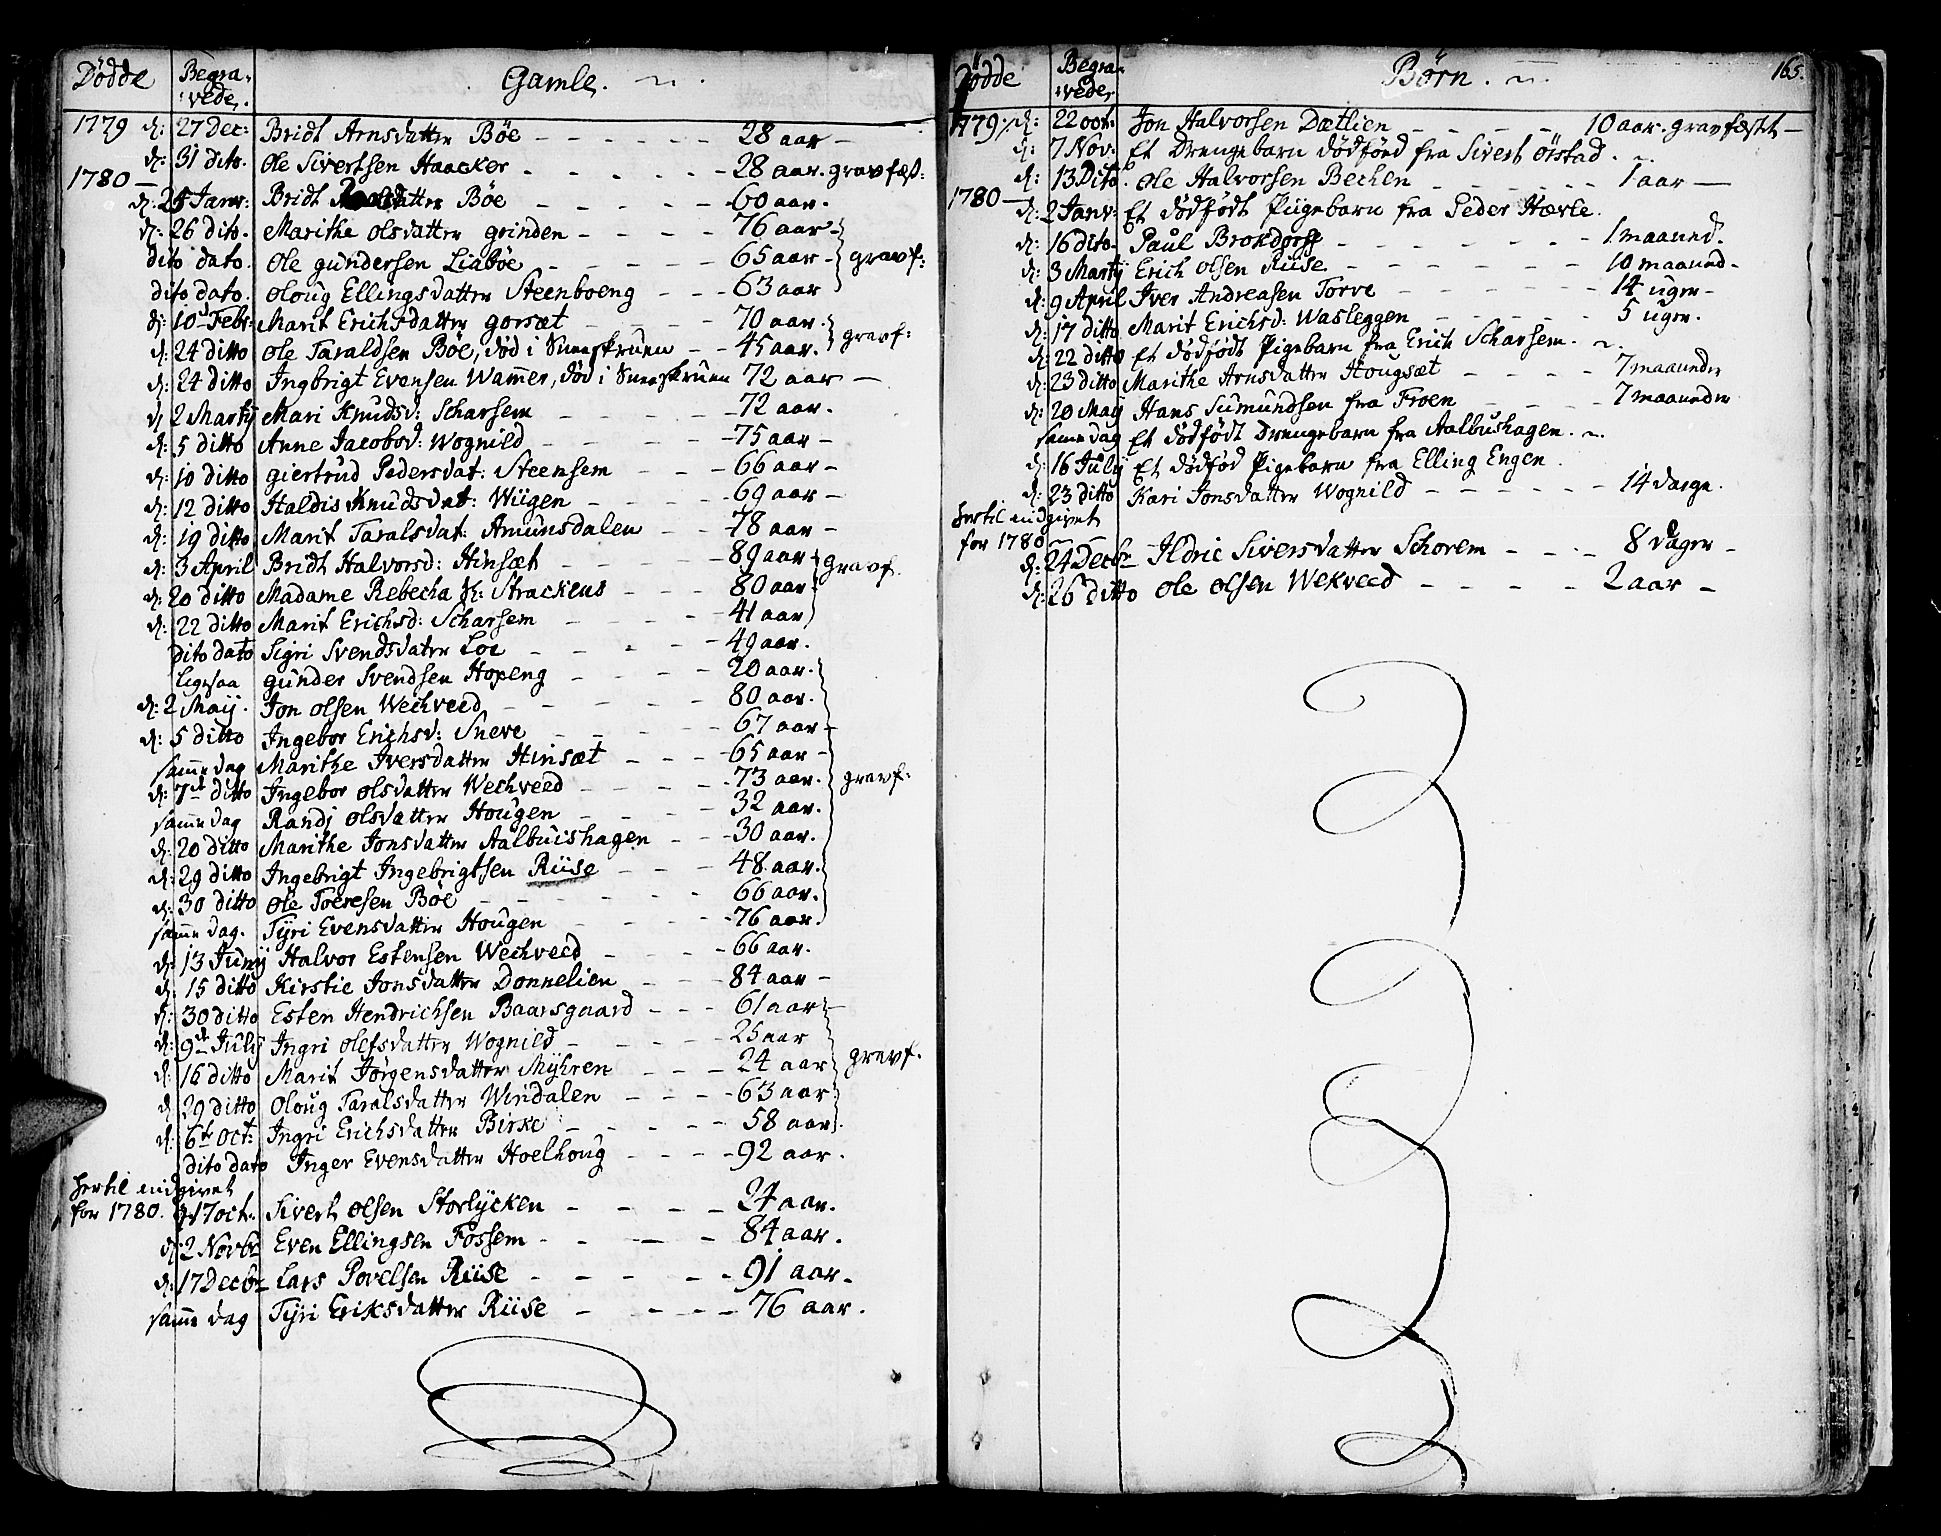 Dödde Begra- Gamle.
vede.
1779 d: 27 Dec: Bridt Arnsdatter Böe - - - - - - 28 aar -
d: 31 dito. Ole Sivertsen Haacker - - - - - 28 aar. gravfæst:
1780 -
d: 25 Janv: Bridt datter Böe - - - - - 60 aar.
d: 26 dito. Marithe Olsdatter Grinden - - - - 76 aar -
dito dato. Ole Gundersen Liaböe - - - - - 65 aar - gravf:
dito dato. Oloug Ellingsdatter Steenboeng - - - 63 aar
d: 10d Febr: Marit Erichsdatter Gorsæt - - - - 70 aar.
d: 24 ditto Ole Taraldsen Böe, död i Sneeskruen - - 45 aar. gravf:
d: 24 ditto Ingbrigt Evensen Wamer, död i Sneeskruen 72 aar -
d: 2 Martÿ Mari Knudsd: Scharsem - - - - - 72 aar.
d: 5 ditto Anne Jacobsd: Wognild - - - - - 75 aar -
d: 10 ditto Giertrud Pedersdat: Steensem - - - 66 aar -
d: 12 ditto Haldis Knudsdat: Wiigen - - - - 69 aar -
d: 19 ditto Marit Taralsdat: Amunsdalen - - 78 aar -
d: 3 April Bridt Halvorsd: Hinsæt - - - - 89 aar gravf.
d: 20 ditto Madame Rebecha Strackens - - - 80 aar
d: 22 ditto Marit Erichsd: Scharsem - - - - 41 aar
dito dato Sigri Svendsdater Loe - - - - 49 aar.
Ligesaa Gunder Svendsen Hopeng - - - - 20 aar.
d: 2 Maij. Jon Olsen Wechveed - - - - - 80 aar.
d: 5 ditto Ingebor Erichsd: Sneve - - - - - 67 aar -
samme dag Marithe Iversdatter Hinsæt - - - 65 aar -
d: 7d ditto Ingebor Olsdatter Wechveed - - - - 73 aar. gravf:
samme dag Randi Olsdatter Hougen - - - 32 aar.
d: 20 ditto Marithe Jonsdatter Aalbuishagen - - - 30 aar.
d: 29 ditto Ingebrigt Ingebrigtsen Riise - - - 48 aar.
d: 30 ditto Ole Toeresen Böe - - - - - - 66 aar.
samme dag. Tÿri Evensdatter Hougen - - - - 76 aar.
d: 13 Junÿ Halvor Estensen Wechveed - - - 66 aar.
d: 15 ditto Kirstie Jonsdatter Donnelien - - - 84 aar -
d: 30 ditto Esten Hendrichsen Baarsgaard - - - 61 aar -
d: 9d Julÿ Ingri Olefsdatter Wognild - - - - - 25 aar
d: 16 ditto Marit Jörgensdatter Mÿhren - - - 24 aar gravf.
d: 29 ditto Oloug Taralsdatter Windalen - - - - 63 aar
d: 6te Oct: Ingri Erichsdatter Birke - - - - - 58 aar.
dito dato Inger Evensdatter Hoelhoug - - - - 92 aar.
hertil indgivet
for 1780. d: 17 octr. Sivert Olsen Storlÿcken - - - - 24 aar.
d: 2 Novbr Even Ellingsen Fossem - - - - 84 aar.
d: 17 Decbr Lars Povelsen Riise - - - - - 91 aar.
samme dag Tÿri Eriksdatter Riise - - - - - 76 aar.
Dödde Begra- Börn. 165.
vede.
1779. d: 22 oct: Jon Halvorsen Dætlien - - - - - 10 aar. gravfæstt -
d: 7 Nov. Et Drengebarn dödföd fra Sivert Örstad.
d: 13 Dito. Ole Halvorsen Bechen - - - - - 1 aar -
1780 -
d: 2 Janv: Et dödfödt Piigebarn fra Peder Hævle.
d: 16 dito. Paul Brokdorff - - - - - - - 1 maaned.
d: 3 Martÿ Erich Olsen Riise - - - - - - - 10 maaned -
d: 9 April Iver Andreasen Torve - - - - - - 14 uger -
d: 17 ditto Marit Erichsd: Wasleggen - - - - - 5 uger.
d: 22 ditto Et dödfödt Pigebarn fra Erich Scharsem.
d: 23 ditto Marithe Arnsdatter Hougsæt - - - - 7 maaneder
d: 20 Maij Hans Sumundsen fra Froen - - - - 7 maaneder
samme dag Et dödfödt Drengebarn fra Aalbushagen.
d: 16 Julÿ Et dödföd Pigebarn fra Elling Engen.
d: 23 ditto Kari Jonsdatter Wognild - - - - - - 14 dage.
hertil indgivet
for 1780
d: 24 Decbr Ildric Siversdatter Schorem - - - - 8 dager -
d: 26 ditto Ole Olsen Wekveed - - - - - 2 aar -